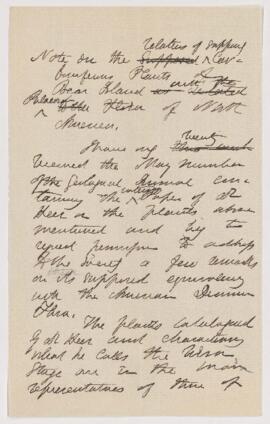 relation of supposed
Note on the Supposed Car-
boniferous Plants
Bear Island with the
Palaeozoic Flora of North
America.
Having recent
received the May number
of the Geological Journal con-
taining the Paper of Dr
Heer on the plants above
mentioned and beg to
request permission to address
to the Society a few remarks
on its supposed equivalency
with the American Devonian
Flora.
The plants catalogued
by Dr Heer and characterizing
what he calls the Ursa
Stage are in the main
representatives of those of